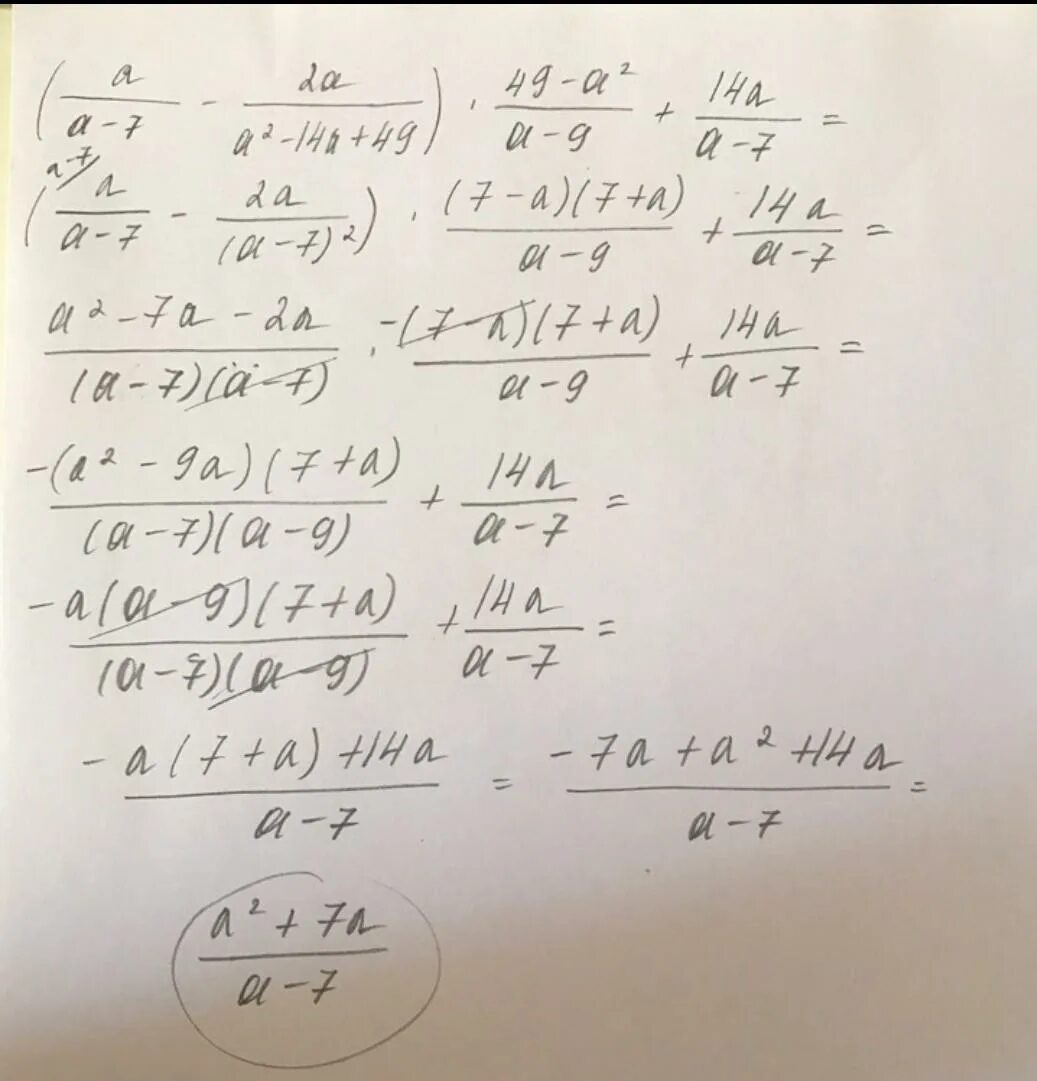 (a/(a-7) - 2a/(a²-14a+49)) · (49-a²)/(a-9) + 14a/(a-7) =
a-7/
(a/(a-7) - 2a/(a-7)²) · (7-a)(7+a)/(a-9) + 14a/(a-7) =
(a²-7a-2a)/((a-7)(a-7)) · -(7-a)(7+a)/(a-9) + 14a/(a-7) =
-(a²-9a)(7+a)/((a-7)(a-9)) + 14a/(a-7) =
-a(a-9)(7+a)/((a-7)(a-9)) + 14a/(a-7) =
(-a(7+a)+14a)/(a-7) = (-7a+a²+14a)/(a-7) =
(a²+7a)/(a-7)